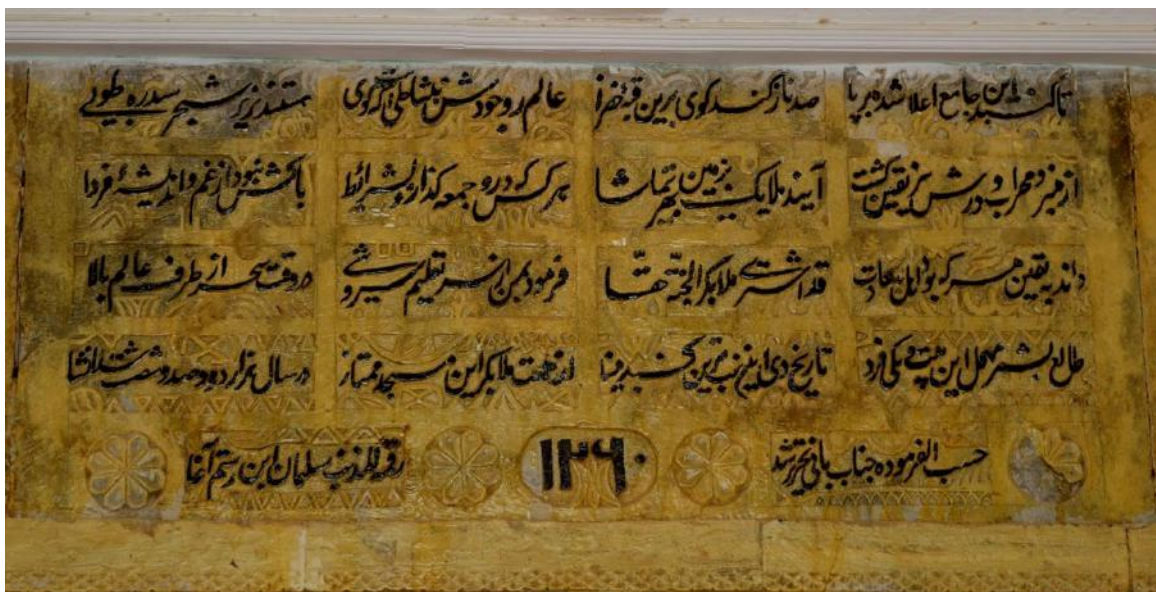 تا گنبد این جامع اعلا شده بر پا صد ناز کند کوی برین قبه خضرا عالم ز وجودش هستند زیر شجر سدره طوبی
از منبر و محراب و درش نیز یقین گشت آیند ملایک بزمین بهر تماشا هر کس که درو جمعه گذارد بشرائط باکش نبود از غم و اندیشهٔ فردا
داند به یقین هر که بود اهل سعادت ملا بکر الجنة حقا فرمود بمن از سر تعظیم سروشی در وقت سحر از طرف عالم بالا
این تاریخ وی از زیب این گنبد مینا ملا بکر این مسجد ممتاز در سال هزار و دو صد و شصت شد انشا
حسب الفرموده جناب بانی تحریر شد ١٢٦٠ رقمه المذنب سلمان ابن رستم آغا